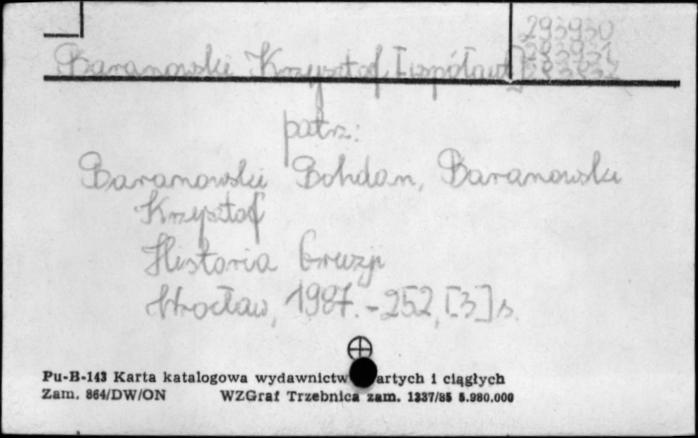 293930
293931
293932
Baranowski Krzysztof [współaut.]
patrz:
Baranowski Bohdan, Baranowski
Krzysztof
Historia Gruzji
Wrocław, 1987. - 252, [3] s.
Pu-B-143 Karta katalogowa wydawnictw artych i ciągłych
Zam. 864/DW/ON WZGraf Trzebnica zam. 1337/85 5.980.000